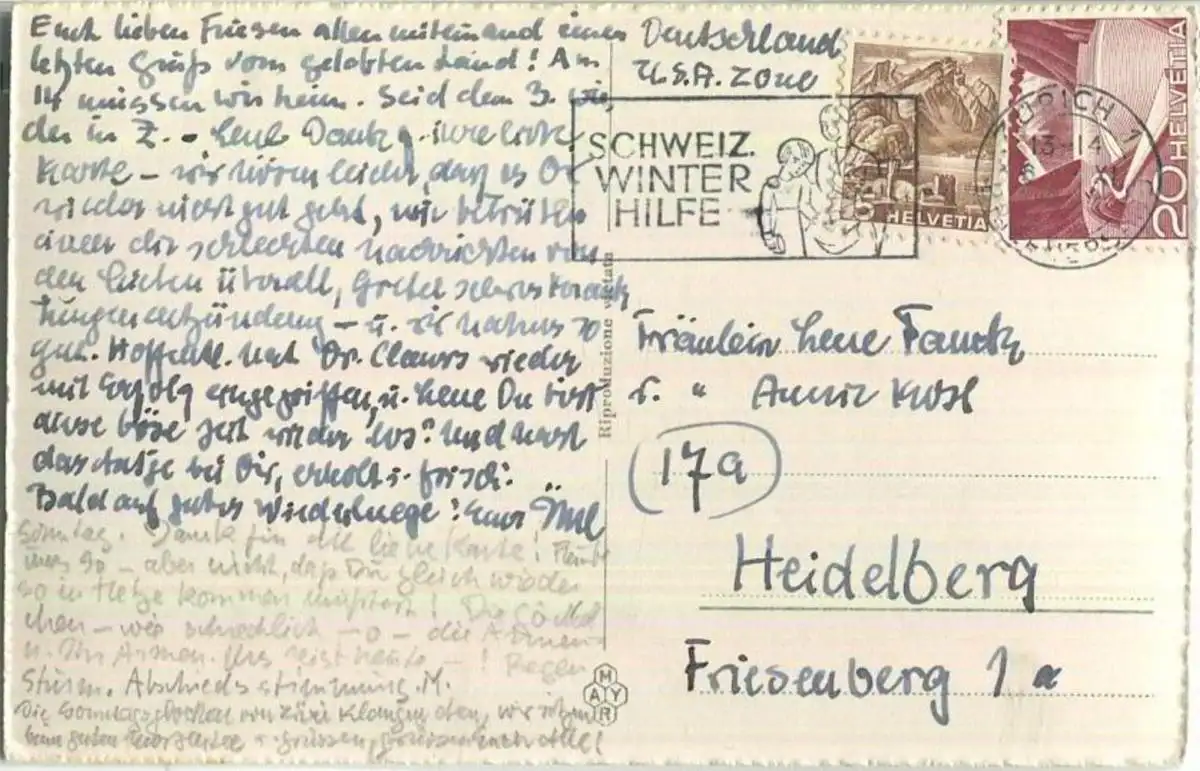 Euch lieben Friesen allen miteinand einen
letzten Gruß vom gelobten Land! Am
14 müssen wir heim. Seid dem 3. wie
der in Z. – Lene Dank f. ihre liebe
Karte – wir hören leider, daß es Dr
wieder nicht gut geht, wir betrübten
über die schlechten Nachrichten von
den Lieben überall, Gretel schwer krank
Lungenentzündung – u.
gut. Hoffentl. hat Dr. Clauss wieder
mit Erfolg eingegriffen, u. Lene Du bist
diese böse Zeit wieder los? Und hast
das bei Dir, erholt u. frisch.
Bald auf gutes Wiedersehn! Eure
Sonntag. Danke für die liebe Karte!
was so – aber nicht, daß Du gleich wieder
so in Hetze kommen müsstest! Die
chen – wie schrecklich – o – die Armen
u. Ihr Armen. heute – ! Regen
Sturm. Abschiedsstimmung. M.
Die Sonntagsglocken von Klangen, wir sitzen
beim guten u. grüssen, grüssen Euch Alle!
Deutschland
U.S.A. Zone
SCHWEIZ.
WINTER
HILFE
5 HELVETIA
20 HELVETIA
ZÜRICH 1
13-14
XI
Riproduzione vietata
Fräulein Lene Fanck
u. " Annie
17a
Heidelberg
Friesenberg 1 a
MAYR